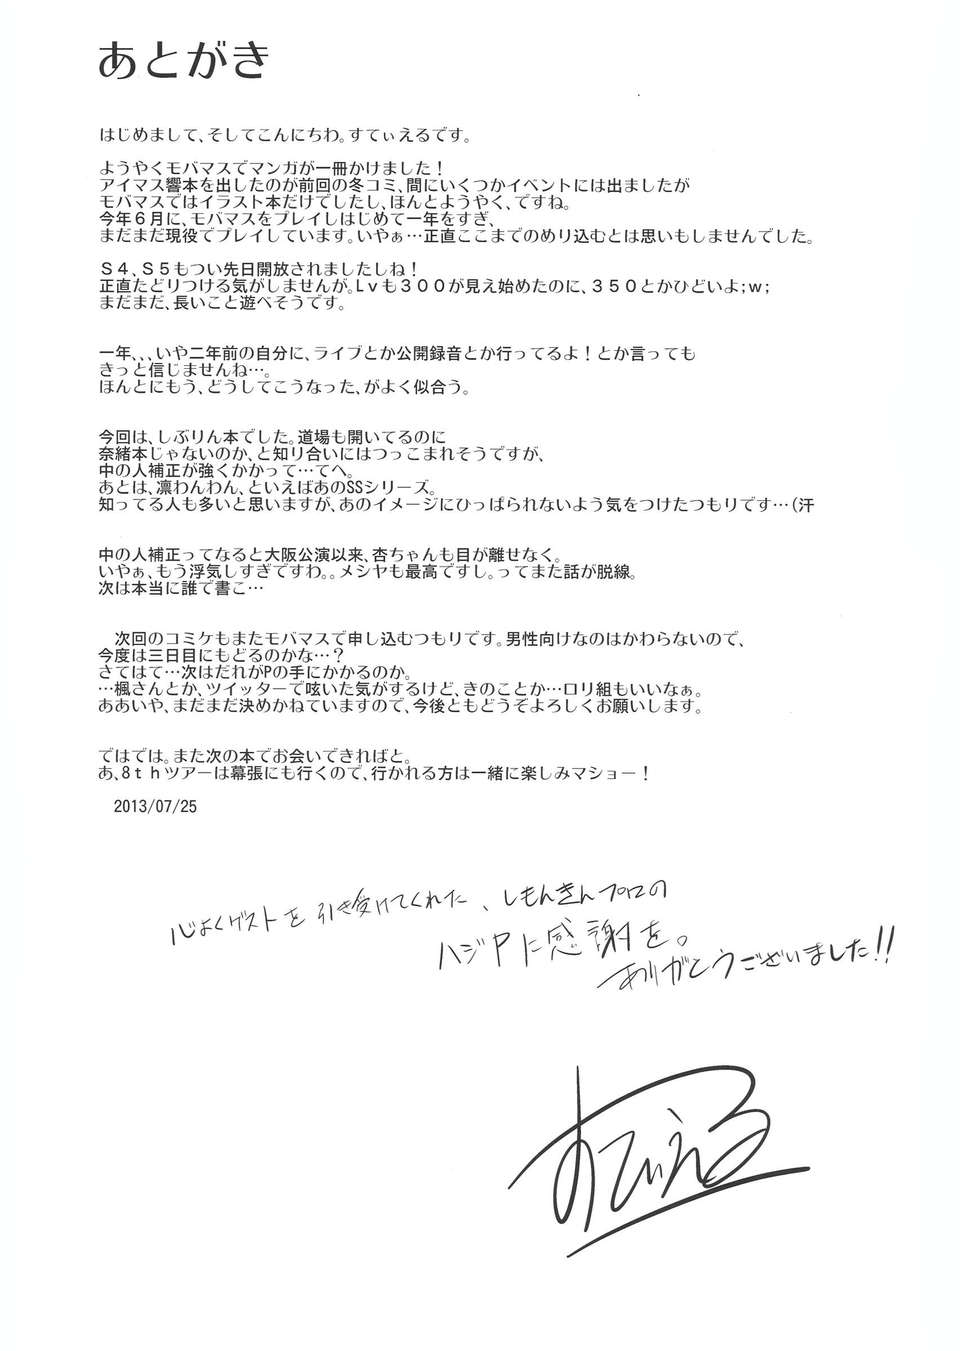 あとがき
はじめまして、そしてこんにちわ。すてぃえるです。
ようやくモバマスでマンガが一冊かけました！
アイマス響本を出したのが前回の冬コミ、間にいくつかイベントには出ましたが
モバマスではイラスト本だけでしたし、ほんとようやく、ですね。
今年６月に、モバマスをプレイしはじめて一年をすぎ、
まだまだ現役でプレイしています。いやぁ…正直ここまでのめり込むとは思いもしませんでした。
Ｓ４、Ｓ５もつい先日開放されましたしね！
正直たどりつける気がしませんが。Ｌｖも３００が見え始めたのに、３５０とかひどいよ；ｗ；
まだまだ、長いこと遊べそうです。
一年、、、いや二年前の自分に、ライブとか公開録音とか行ってるよ！とか言っても
きっと信じませんね…。
ほんとにもう、どうしてこうなった、がよく似合う。
今回は、しぶりん本でした。道場も開いてるのに
奈緒本じゃないのか、と知り合いにはつっこまれそうですが、
中の人補正が強くかかって…てへ。
あとは、凛わんわん、といえばあのSSシリーズ。
知ってる人も多いと思いますが、あのイメージにひっぱられないよう気をつけたつもりです…（汗
中の人補正ってなると大阪公演以来、杏ちゃんも目が離せなく。
いやぁ、もう浮気しすぎですわ。。メシヤも最高ですし。ってまた話が脱線。
次は本当に誰で書こ…
次回のコミケもまたモバマスで申し込むつもりです。男性向けなのはかわらないので、
今度は三日目にもどるのかな…？
さてはて…次はだれがPの手にかかるのか。
…楓さんとか、ツイッターで呟いた気がするけど、きのことか…ロリ組もいいなぁ。
ああいや、まだまだ決めかねていますので、今後ともどうぞよろしくお願いします。
ではでは。また次の本でお会いできればと。
あ、8ｔｈツアーは幕張にも行くので、行かれる方は一緒に楽しみマショー！
2013/07/25
心よくゲストを引き受けてくれた、しもんきんプロの
ハジPに感謝を。
ありがとうございました!!
すてぃえる